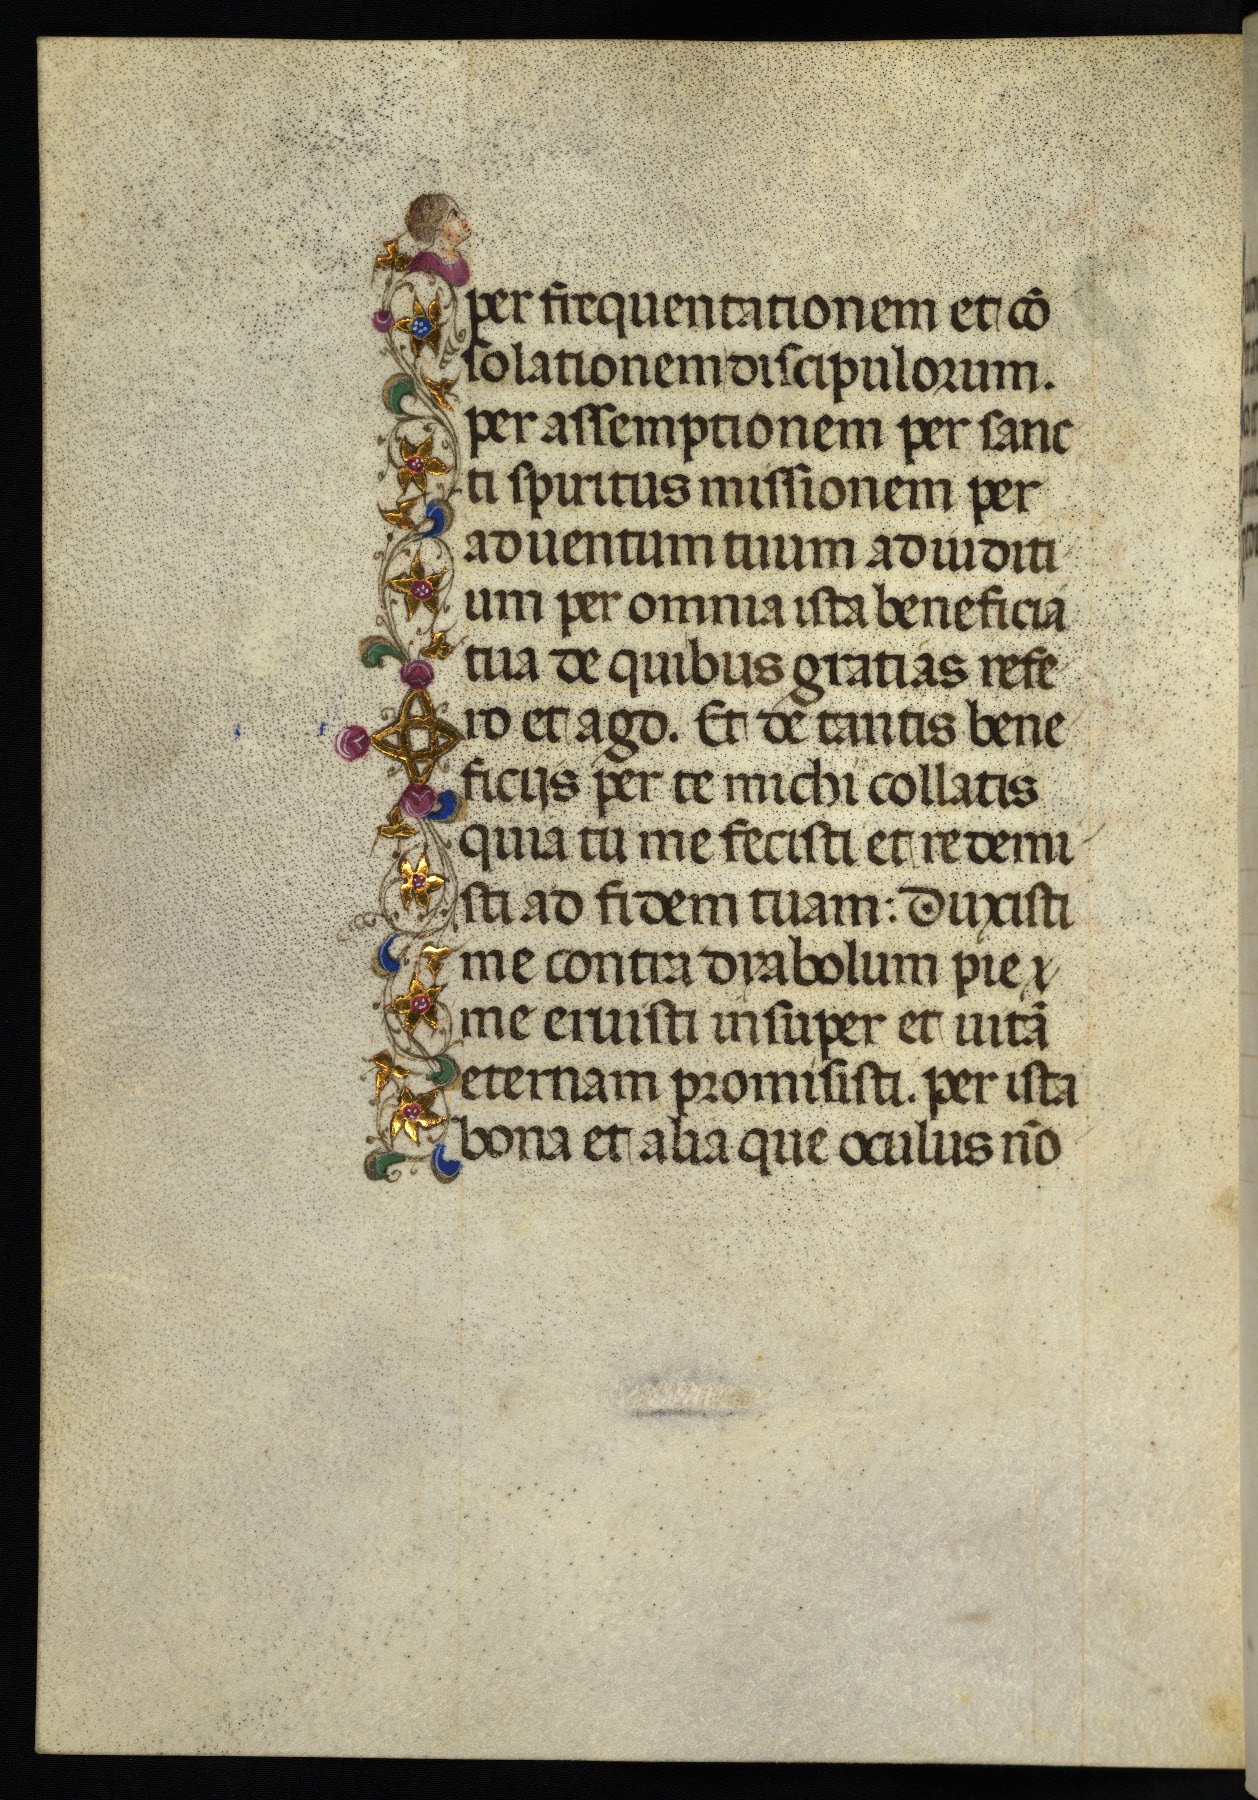 per frequentationem et cō
solationem discipulorum.
per assemptionem per sanc
ti spiritus missionem per
aduentum tuum ad iuditi
um per omnia ista beneficia
tua de quibus gratias refe
ro et ago. Et de tantis bene
ficijs per te michi collatis
quia tu me fecisti et redemi
sti ad fidem tuam: Duxisti
me contra diabolum pie χ
me eruisti insuper et uitā
eternam promisisti. per ista
bona et alia que oculus nō